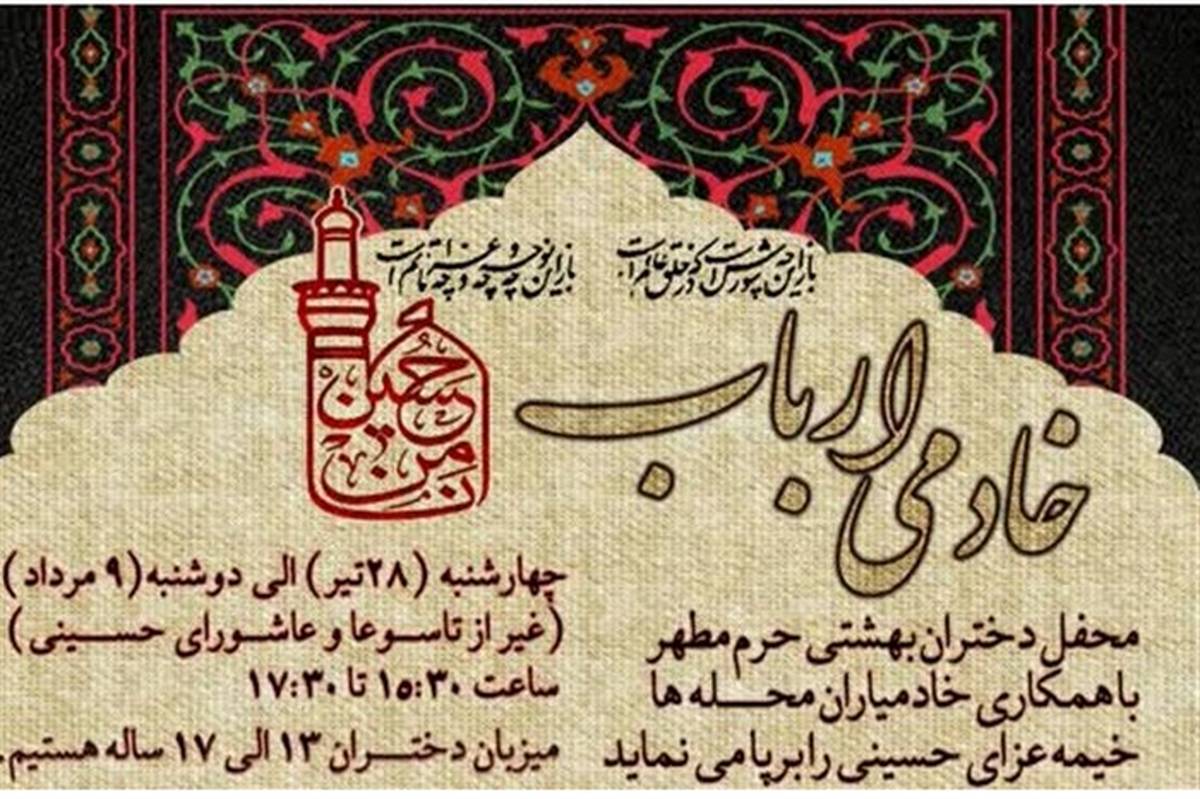 باز این چه شورش است که در خلق عالم است
باز این چه نوحه و چه عزا و چه ماتم است
حسین
منی
انا من
خادمی ارباب
محفل دختران بهشتی حرم مطهر
با همکاری خادمیاران محله ها
خیمه عزای حسینی را برپا می نماید
چهارشنبه (۲۸تیر) الی دوشنبه(۹ مرداد)
(غیر از تاسوعا و عاشورای حسینی)
ساعت ۱۵:۳۰ تا ۱۷:۳۰
میزبان دختران ۱۳ الی ۱۷ ساله هستیم.